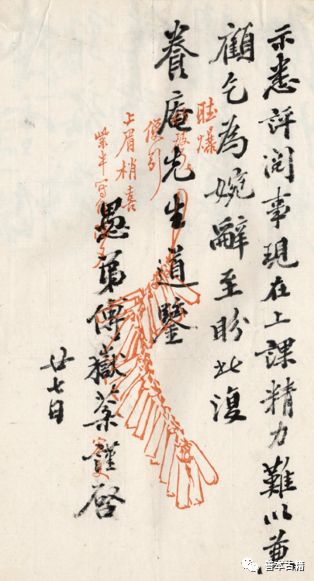 示悉評閱事現在上課精力難以兼
顧乞為婉辭至盼此復
養庵先生道鑒
愚弟傅嶽棻謹啓
廿七日
上眉梢喜
善本古籍